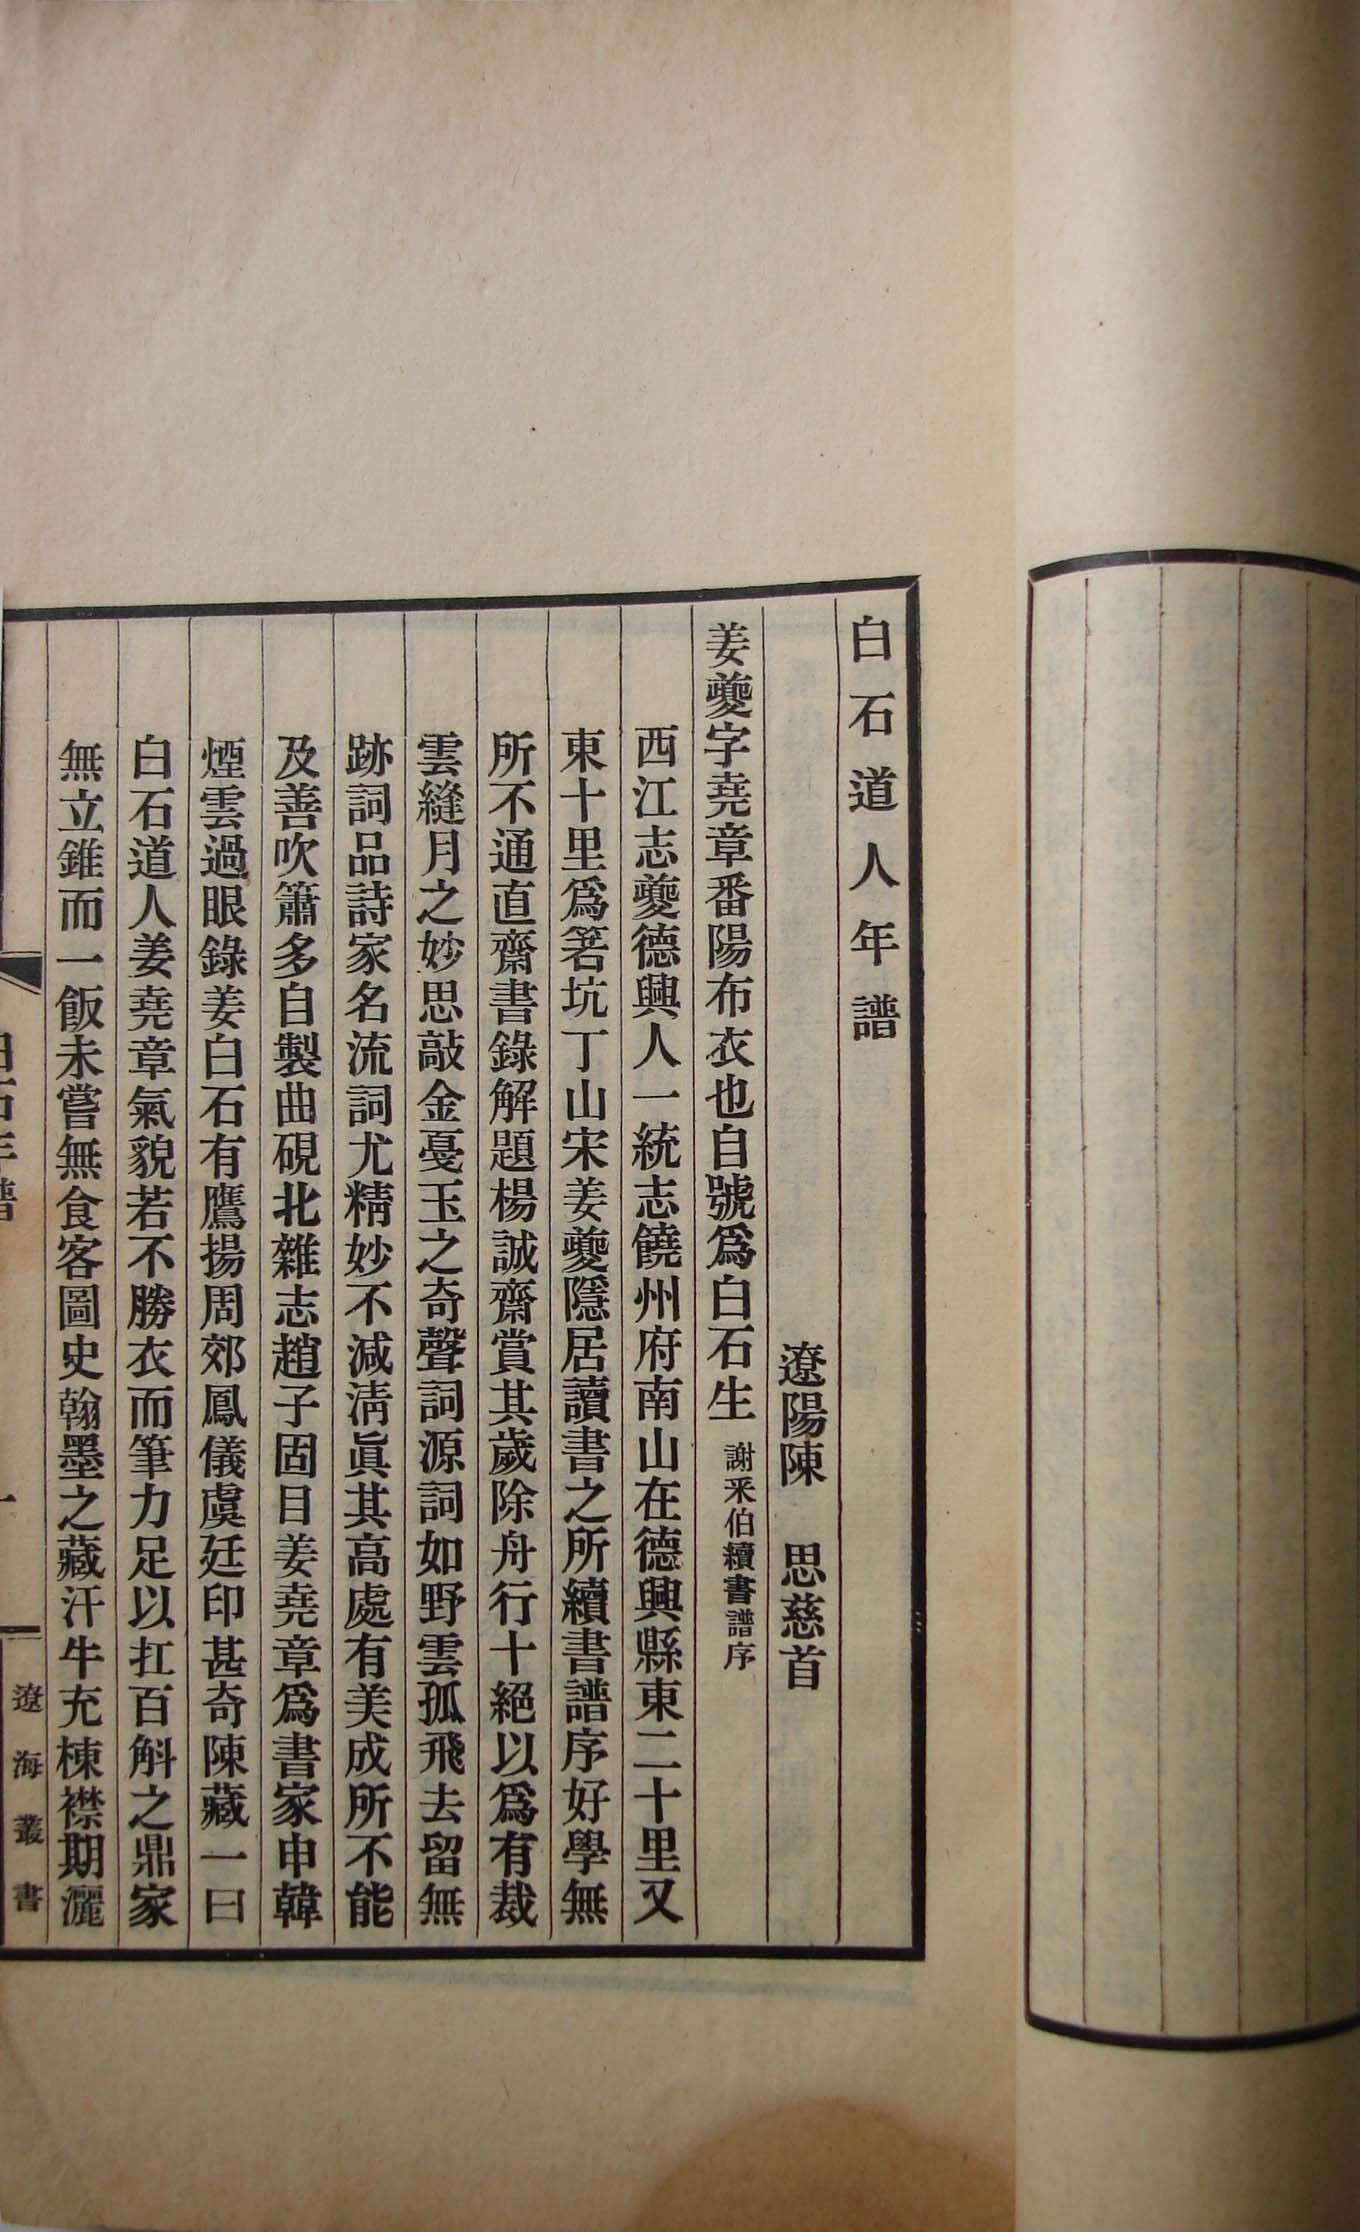 白石道人年譜
遼陽陳 思慈首
姜夔字堯章番陽布衣也自號爲白石生 謝釆伯續書譜序
西江志夔德興人一統志饒州府南山在德興縣東二十里又
東十里爲箬坑丁山宋姜夔隱居讀書之所續書譜序好學無
所不通直齋書錄解題楊誠齋賞其歲除舟行十絕以爲有裁
雲縫月之妙思敲金戞玉之奇聲詞源詞如野雲孤飛去留無
跡詞品詩家名流詞尤精妙不減淸眞其高處有美成所不能
及善吹簫多自製曲硯北雜志趙子固目姜堯章爲書家申韓
煙雲過眼錄姜白石有鷹揚周郊鳳儀虞廷印甚奇陳藏一曰
白石道人姜堯章氣貌若不勝衣而筆力足以扛百斛之鼎家
無立錐而一飯未嘗無食客圖史翰墨之藏汗牛充棟襟期灑
白石年譜
一
遼海叢書